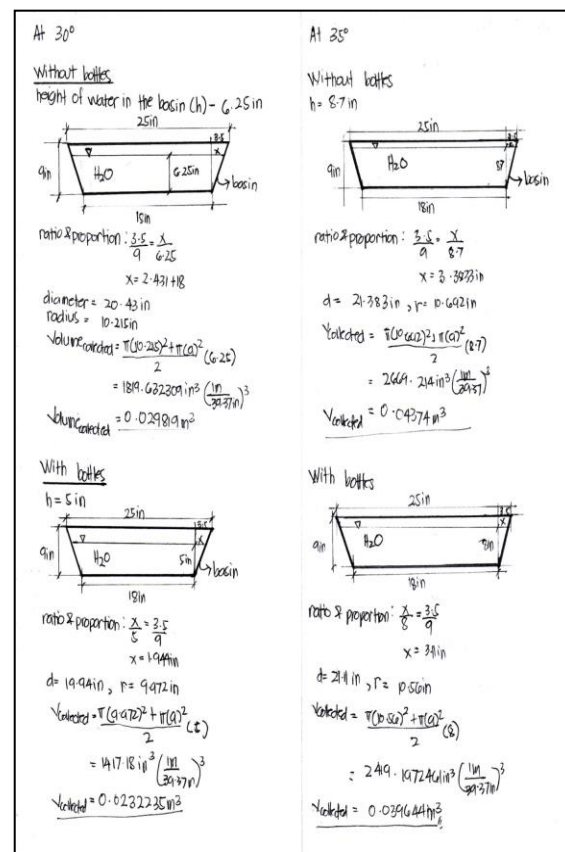 At 30°
Without bottles
height of water in the basin (h) - 6.25in
25in
3.5
x
9in
H2O
6.25in
basin
18in
ratio & proportion: 3.5/9 = x/6.25
x = 2.431+18
diameter = 20.43in
radius = 10.215in
Volume collected = π(10.215)² + π(9)² / 2 (6.25)
= 1819.632309in³ (1m/39.37in)³
Volume collected = 0.029819m³
With bottles
h = 5in
25in
3.5
x
9in
H2O
5in
basin
18in
ratio & proportion: x/5 = 3.5/9
x = 1.944in
d = 19.94in, r = 9.972in
Vcollected = π(9.972)² + π(9)² / 2 (5)
= 1417.18in³ (1m/39.37in)³
Vcollected = 0.0232235m³
At 35°
Without bottles
h = 8.7in
25in
3.5
x
9in
H2O
8.7
basin
18in
ratio & proportion: 3.5/9 = x/8.7
x = 3.3833in
d = 21.383in, r = 10.692in
Vcollected = π(10.692)² + π(9)² / 2 (8.7)
= 2669.214in³ (1m/39.37in)³
Vcollected = 0.04374m³
With bottles
25in
3.5
x
9in
H2O
8in
18in
ratio & proportion: x/8 = 3.5/9
x = 3.11in
d = 21.11in, r = 10.56in
Vcollected = π(10.56)² + π(9)² / 2 (8)
= 2419.197246in³ (1m/39.37in)³
Vcollected = 0.039644m³